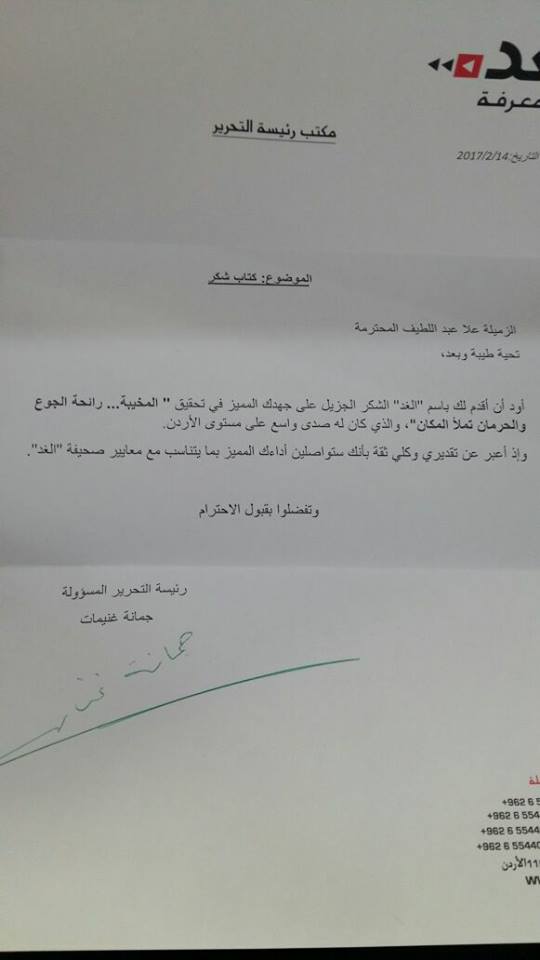 مكتب رئيسة التحرير
التاريخ:2017/2/14
الموضوع: كتاب شكر
الزميلة علا عبد اللطيف المحترمة
تحية طيبة وبعد،
أود أن أقدم لك باسم "الغد" الشكر الجزيل على جهدك المميز في تحقيق " المخيبة... رائحة الجوع
والحرمان تملأ المكان"، والذي كان له صدى واسع على مستوى الأردن.
وإذ أعبر عن تقديري وكلي ثقة بأنك ستواصلين أداءك المميز بما يتناسب مع معايير صحيفة "الغد".
وتفضلوا بقبول الاحترام
رئيسة التحرير المسؤولة
جمانة غنيمات
جمانة
+962 6 5
+962 6 554
+962 6 5544
+962 6 55440
الأردن